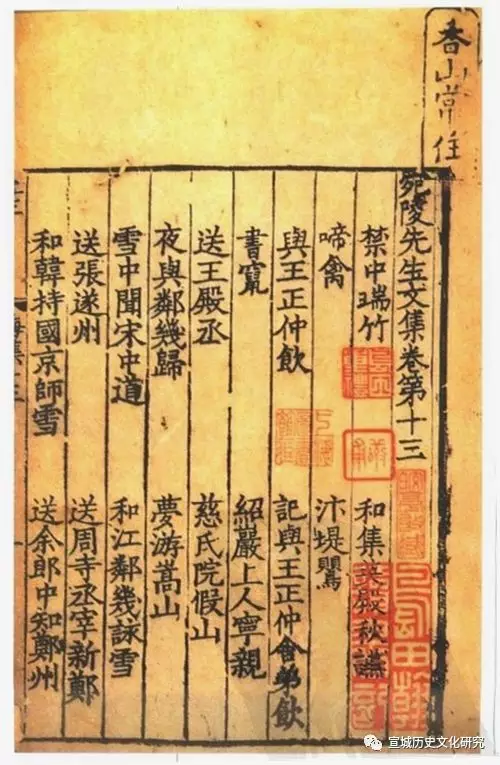 香山常住
宛陵先生文集卷第十三
禁中瑞竹　和集英殿秋讌
啼禽　汴堤鸎
與王正仲飲　記與王正仲會弟飲
書竄　紹嚴上人寧親
送王殿丞　慈氏院假山
夜與鄰幾歸　夢游嵩山
雪中聞宋中道　和江鄰幾詠雪
送張遂州　送周寺丞宰新鄭
和韓持國京師雪　送余郎中知鄭州
宣城历史文化研究